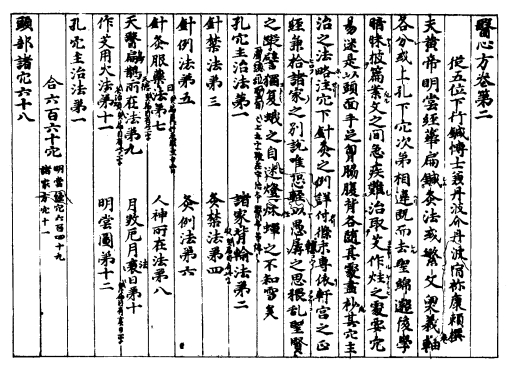 醫心方卷第二
從五位下行鍼博士兼丹波介丹波宿祢康賴撰
夫黃帝明堂經華扁鍼灸法或繁文奧義軸
各分或上孔下穴次第相違既而去聖綿邈後學
暗昧披篇葉文之間急疾難治取艾作炷之處要穴
易迷是以頭面手足胷脇腹背各隨其處盡抄其穴主
治之法略注穴下針灸之例詳付條末專依軒宮之正
經兼拾諸家之別說唯恐輕以愚庸之思猥乱聖賢
之弊譬猶夏蛾之自迷燈秋蟬之不知雪矣
孔穴主治法第一 諸家背輸法第二
針禁法第三 灸禁法第四
針例法第五 灸例法第六
針灸服藥法第七 人神所在法第八
天醫扁鵲所在法第九 月煞厄月衰日第十
作艾用火法第十一 明堂圖第十二
孔穴主治法第一
合六百六十穴 明堂經穴六百四十九 諸家方穴十一
頭部諸穴六十八